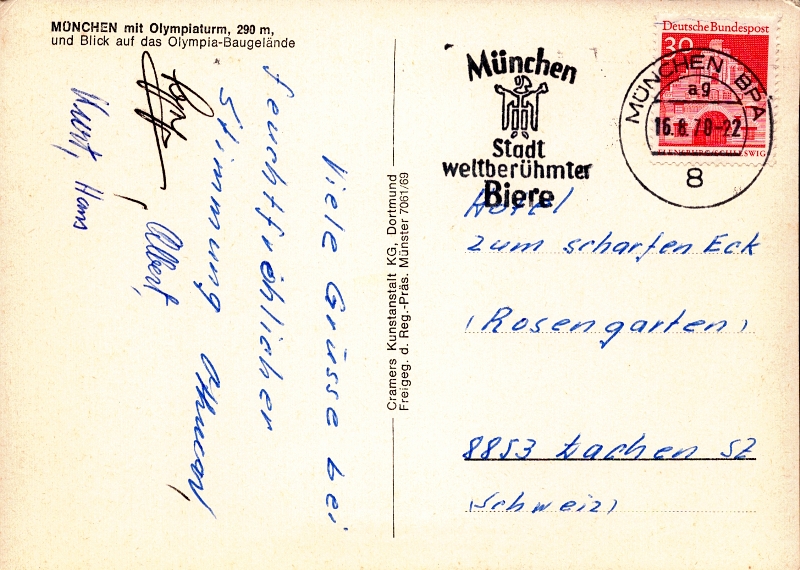 MÜNCHEN mit Olympiaturm, 290 m,
und Blick auf das Olympia-Baugelände
Viele Grüsse bei
feuchtfröhlicher
Stimmung
Albert,
Kurt, Hans
Cramers Kunstanstalt KG, Dortmund
Freigeg. d. Reg.-Präs. Münster 7061/69
München
Stadt
weltberühmter
Biere
Deutsche Bundespost
30
FLENSBURG/SCHLESWIG
MÜNCHEN BPA
ag
16.8.70-22
8
Hotel
zum scharfen Eck
(Rosengarten)
8853 Lachen SZ
(Schweiz)